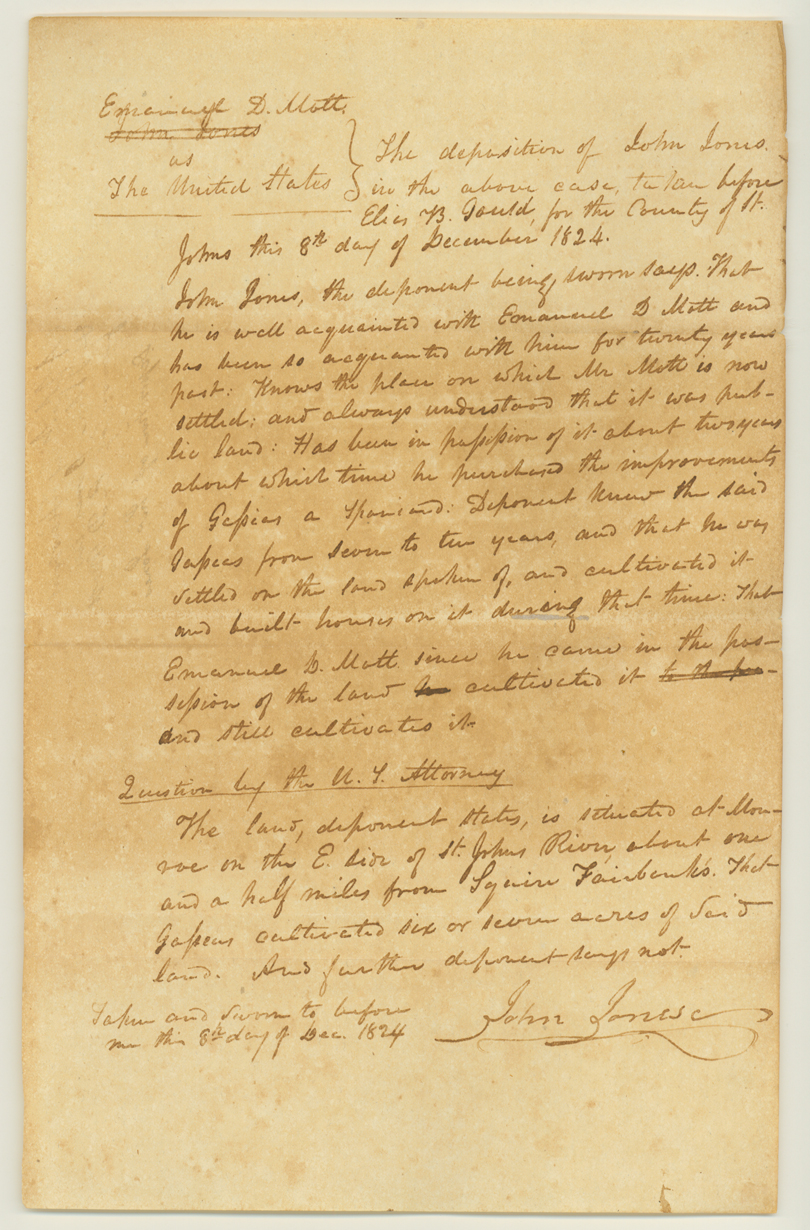 Emanuel D. Mott.
John Jones
vs
The United States
The deposition of John Jones.
in the above case, taken before
Elias B. Gould, for the County of St.
Johns this 8th day of December 1824.
John Jones, the deponent being sworn says. That
he is well acquainted with Emanuel D Mott and
has been so acquanted with him for twenty years
past: Knows the place on which Mr Mott is now
settled: and always understood that it was pub-
lic land: Has been in possession of it about two years
about which time he purchased the improvements
of Gaseas a Spaniard: Deponent knew the said
Gaseas from seven to ten years, and that he was
settled on the land spoken of, and cultivated it
and built houses on it during that time: That
Emanuel D. Mott since he came in the pos-
session of the land he cultivated it to the pre-
and still cultivates it
Question by the U. S. Attorney
The land, deponent states, is situated at Mon-
roe on the E. side of St. Johns River, about one
and a half miles from Squire Fairbank's. That
Gaseas cultivated six or seven acres of said
land. And further deponent says not.
Taken and sworn to before
me this 8th day of Dec. 1824
John Jones